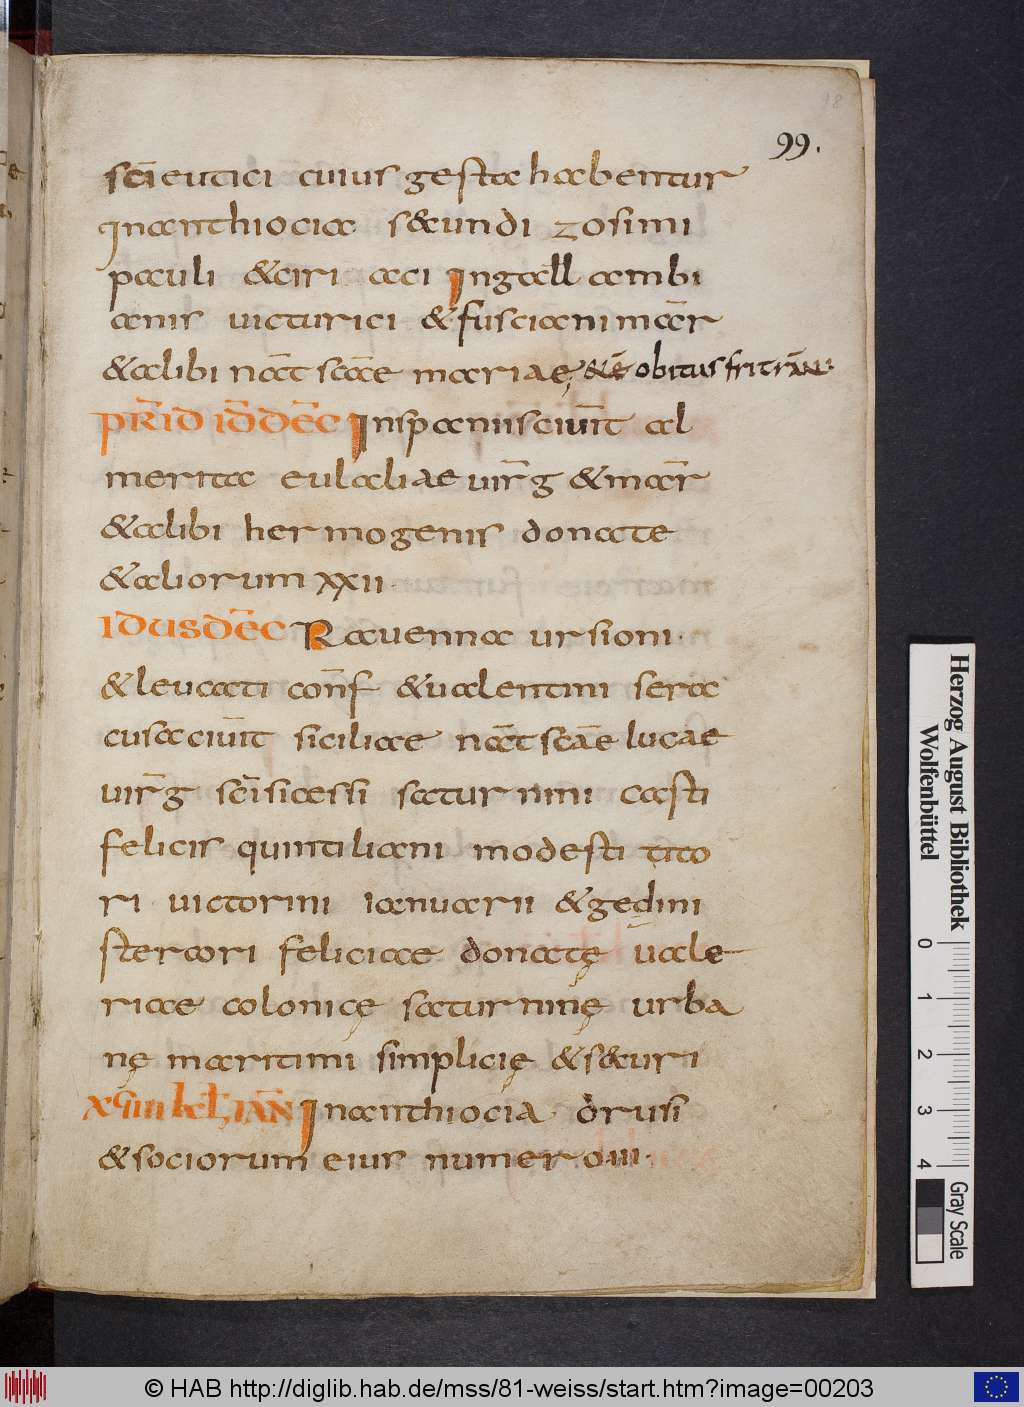 18
99.
sc̄i eutici cuius gesta habentur
Inanthiocia s&undi zosimi
pauli &ciri aci Ingall ambi
anis uicturici &fusciani mar̄
&alibi nat̄ scāe mariae,
PR̄ID ID̄ DEC̄ Inspaniis ciuit̄ al
merita eulaliae uirḡ &mar̄
&alibi hermogenis donate
&aliorum xxii.
IDUS DEC̄ Rauennae ursioni.
&leucati conf̄ &ualentini sera
cusa ciuit̄ siciliae nat̄ scāe lucae
uirḡ sc̄i sicessi saturnini casti
felicis quintiliani modesti tito
ri uictorini ianuarii &gedini
stercori feliciae donatę uale
riae colonicę saturninę urba
nę maritimi simplicię &s&uri
Inanthiocia drusi
&sociorum eius numero.iii.
Herzog August Bibliothek
Wolfenbüttel
0 1 2 3 4
Gray Scale
© HAB http://diglib.hab.de/mss/81-weiss/start.htm?image=00203